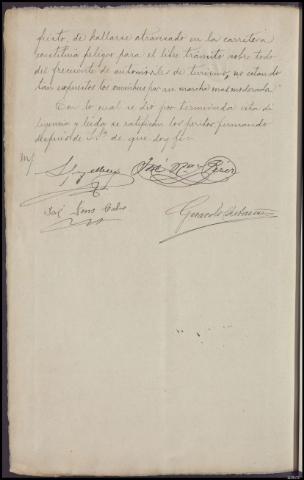 puesto, de hallarse atravesado en la carretera
constituía peligro para el libre tránsito sobre todo
del frecuente de automóviles de turismo, no estando
tan expuestos los camiones por su marcha mas moderada.
Con lo cual se dió por terminada esta di
ligencia y leida se ratifican los peritos firmando
después de S.Sª de que doy fe.
José Mª
José
Gerardo